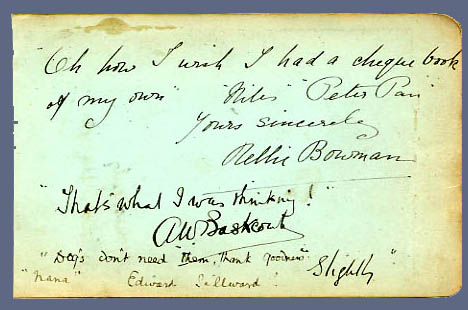 "Oh how I wish I had a cheque book
of my own" "Nibs" "Peter Pan"
Yours sincerely
Nellie Bowman
"That's what I was thinking!"
AW Baskcomb
"Slightly"
"Dogs don't need them, thank goodness"
"Nana" Edward Sillward!